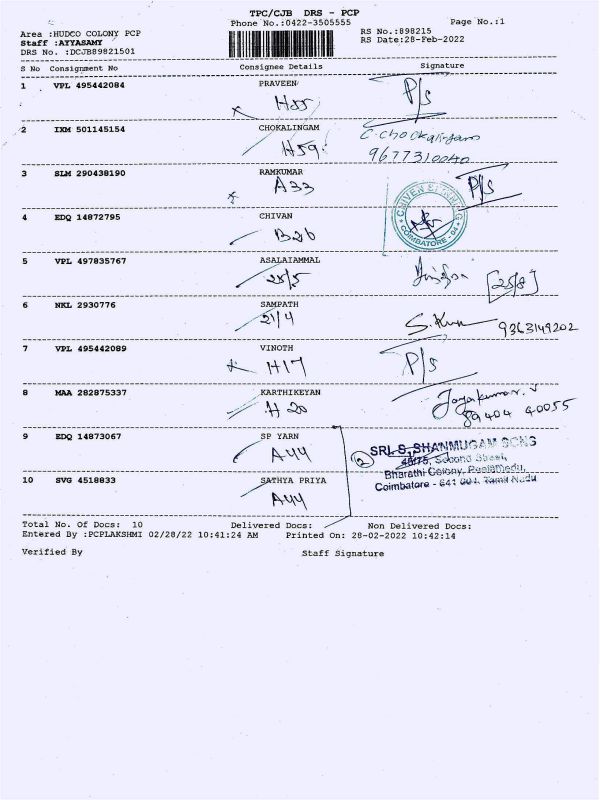 TPC/CJB DRS - PCP
Phone No.:0422-3505555
Page No.:1
Area :HUDCO COLONY PCP
RS No.:898215
Staff :AYYASAMY
RS Date:28-Feb-2022
DRS No. :DCJB89821501
S No Consignment No Consignee Details Signature
1 VPL 495442084 PRAVEEN P/s
H55
2 IXM 501145154 CHOKALINGAM C. chockalingam
H59 9677310040
3 SLM 290438190 RAMKUMAR P/s
A33
4 EDQ 14872795 CHIVAN
B26 COIMBATORE
5 VPL 497835767 ASALAIAMMAL
25/5 [25/8]
6 NKL 2930776 SAMPATH
21/4 9363149202
7 VPL 495442089 VINOTH P/s
H17
8 MAA 282875337 KARTHIKEYAN Jayakumar. J
H 20 89404 40055
9 EDQ 14873067 SP YARN
A44 2 SRI. S. SHANMUGAM SONS
46/75, Second Street,
Bharathi Colony, Peelamedu,
10 SVG 4518833 SATHYA PRIYA Coimbatore - 641 004. Tamil Nadu
A44
Total No. Of Docs: 10 Delivered Docs: Non Delivered Docs:
Entered By :PCPLAKSHMI 02/28/22 10:41:24 AM Printed On: 28-02-2022 10:42:14
Verified By Staff Signature